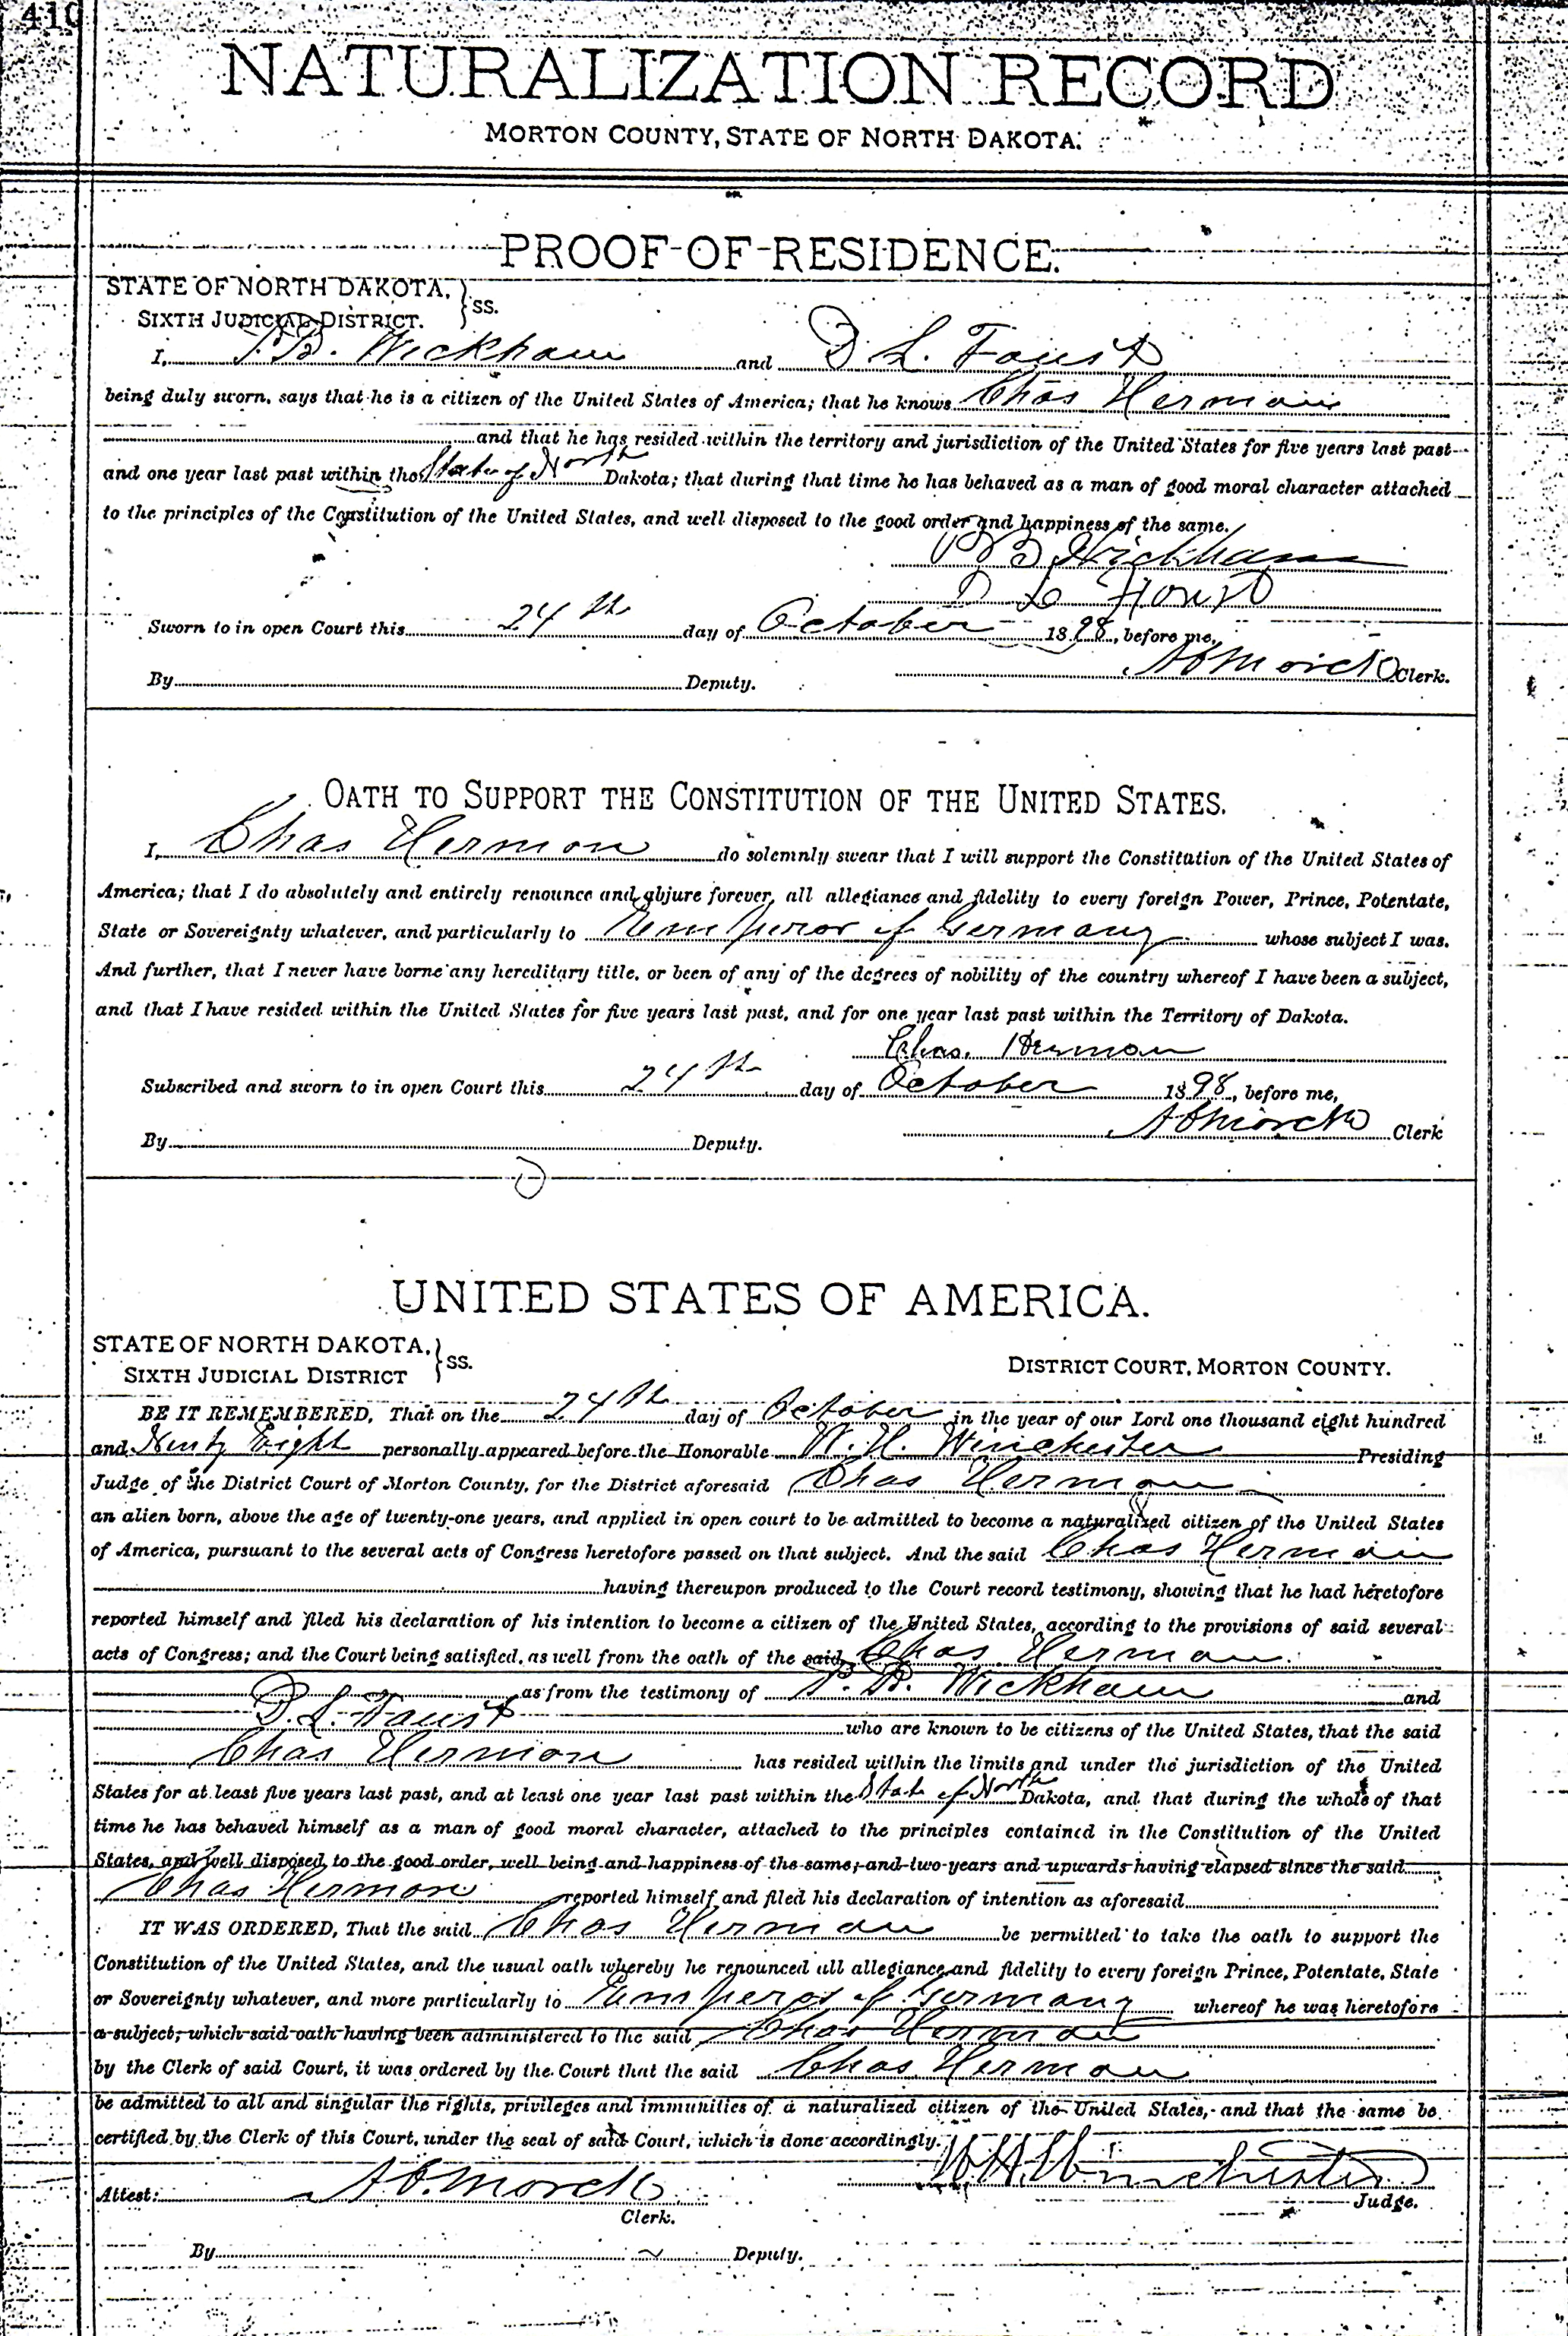 410
NATURALIZATION RECORD
MORTON COUNTY, STATE OF NORTH DAKOTA.
PROOF-OF-RESIDENCE.
STATE OF NORTH DAKOTA, } SS.
SIXTH JUDICIAL DISTRICT.
I, P. B. Wickham and D. L. Faust
being duly sworn, says that he is a citizen of the United States of America; that he knows Chas Herman
and that he has resided within the territory and jurisdiction of the United States for five years last past
and one year last past within the State of North Dakota; that during that time he has behaved as a man of good moral character attached
to the principles of the Constitution of the United States, and well disposed to the good order and happiness of the same.
P B Wickham
D L Foust
Sworn to in open Court this 24th day of October 1898, before me,
By Deputy. Clerk.
OATH TO SUPPORT THE CONSTITUTION OF THE UNITED STATES.
I, Chas Herman do solemnly swear that I will support the Constitution of the United States of
America; that I do absolutely and entirely renounce and abjure forever, all allegiance and fidelity to every foreign Power, Prince, Potentate,
State or Sovereignty whatever, and particularly to Emperor of Germany whose subject I was.
And further, that I never have borne any hereditary title, or been of any of the degrees of nobility of the country whereof I have been a subject,
and that I have resided within the United States for five years last past, and for one year last past within the Territory of Dakota.
Chas. Herman
Subscribed and sworn to in open Court this 24th day of October 1898, before me,
By Deputy. Clerk
UNITED STATES OF AMERICA.
STATE OF NORTH DAKOTA, } SS.
SIXTH JUDICIAL DISTRICT DISTRICT COURT, MORTON COUNTY.
BE IT REMEMBERED, That on the 24th day of October in the year of our Lord one thousand eight hundred
and Ninty Eight personally appeared before the Honorable W. H. Winchester Presiding
Judge of the District Court of Morton County, for the District aforesaid Chas Herman
an alien born, above the age of twenty-one years, and applied in open court to be admitted to become a naturalized citizen of the United States
of America, pursuant to the several acts of Congress heretofore passed on that subject. And the said Chas Herman
having thereupon produced to the Court record testimony, showing that he had heretofore
reported himself and filed his declaration of his intention to become a citizen of the United States, according to the provisions of said several
acts of Congress; and the Court being satisfied, as well from the oath of the said Chas. Herman
as from the testimony of P. B. Wickham and
D. L. Faust who are known to be citizens of the United States, that the said
Chas Herman has resided within the limits and under the jurisdiction of the United
States for at least five years last past, and at least one year last past within the State of North Dakota, and that during the whole of that
time he has behaved himself as a man of good moral character, attached to the principles contained in the Constitution of the United
States, and well disposed to the good order, well being and happiness of the same; and two years and upwards having elapsed since the said
Chas Herman reported himself and filed his declaration of intention as aforesaid
IT WAS ORDERED, That the said Chas Herman be permitted to take the oath to support the
Constitution of the United States, and the usual oath whereby he renounced all allegiance and fidelity to every foreign Prince, Potentate, State
or Sovereignty whatever, and more particularly to Emperor of Germany whereof he was heretofore
a subject; which said oath having been administered to the said Chas Herman
by the Clerk of said Court, it was ordered by the Court that the said Chas Herman
be admitted to all and singular the rights, privileges and immunities of a naturalized citizen of the United States, and that the same be
certified by the Clerk of this Court, under the seal of said Court, which is done accordingly.
W H Winchester
Attest: Judge.
Clerk.
By Deputy.